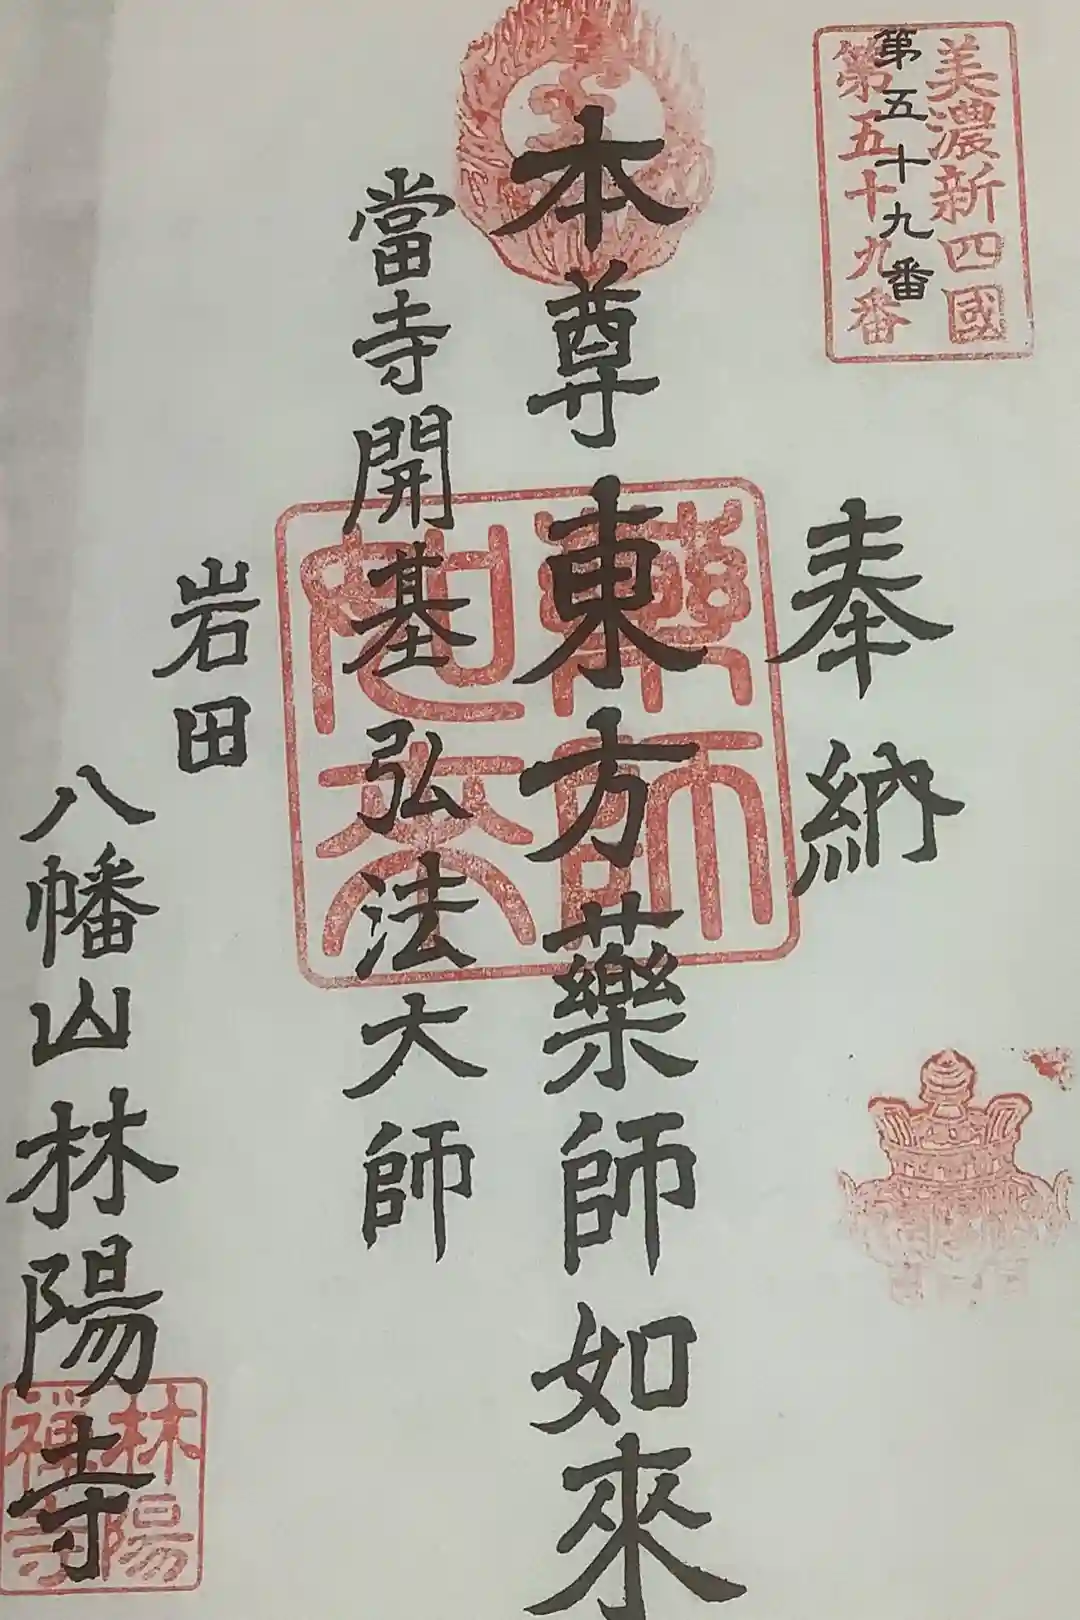 美濃新四國
第五十九番
第五十九番
奉納
本尊東方藥師如來
當寺開基弘法大師
藥師如来
岩田
八幡山林陽寺
林陽
禅寺